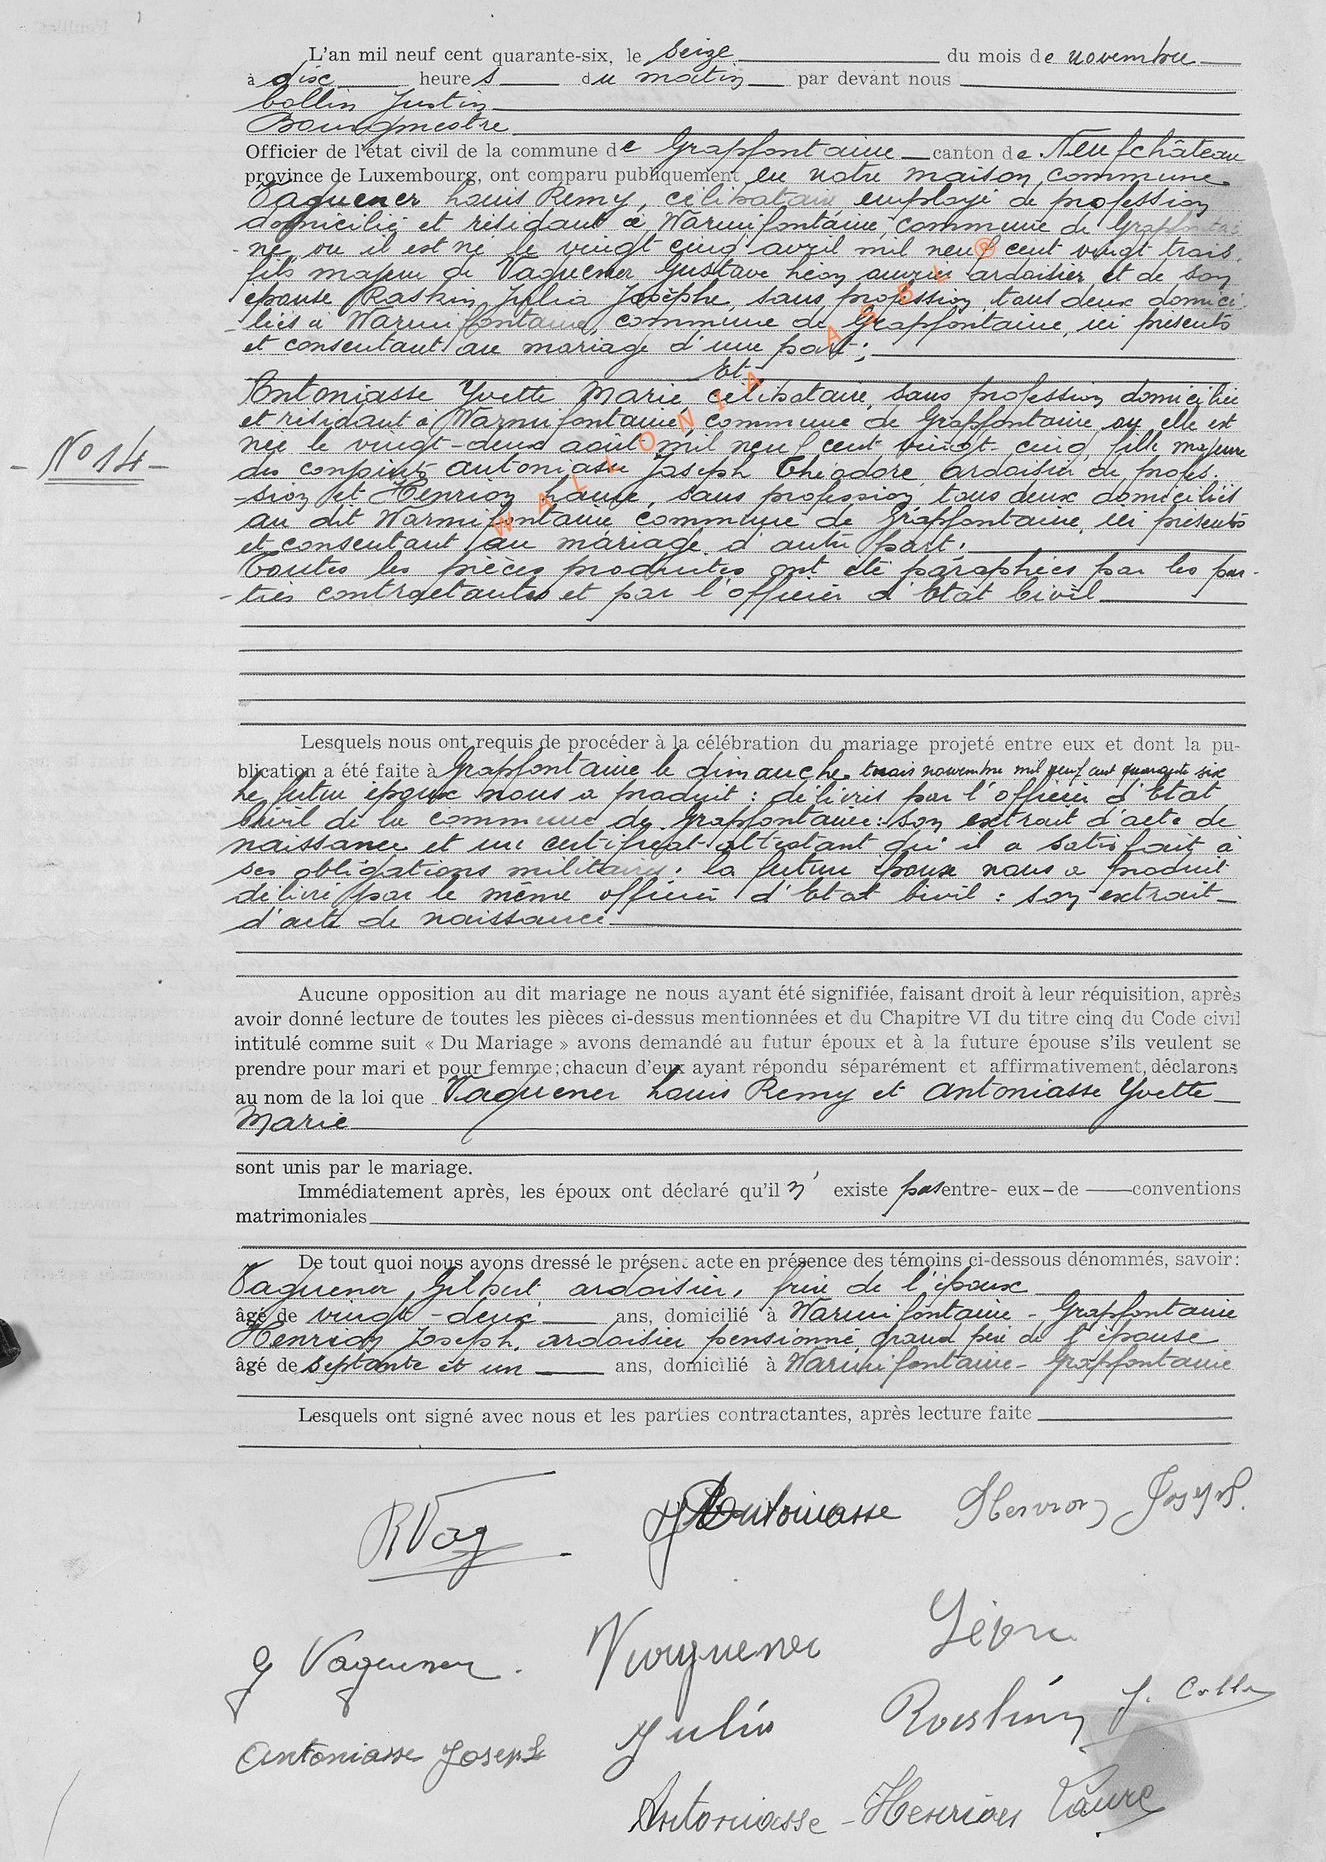 L'an mil neuf cent quarante-six, le seize du mois de novembre
à dix heures du matin par devant nous
Collin Justin
Bourgmestre
Officier de l'état civil de la commune de Grapfontaine canton de Neufchâteau
province de Luxembourg, ont comparu publiquement en notre maison commune
Vaguener Louis Remy, célibataire employé de profession
domicilié et résidant à Warmifontaine, commune de Grapfontai-
ne, ou il est né le vingt cinq avril mil neuf cent vingt trois,
fils majeur de Vaguener Gustave Léon, ouvrier ardoisier et de son
épouse Raskin Julia Josèphe, sans profession, tous deux domici-
liés à Warmifontaine, commune de Grapfontaine, ici présents
et consentant au mariage d'une part;
Et
Antoniasse Yvette Marie célibataire, sans profession domiciliée
et résidant à Warmifontaine, commune de Grapfontaine, ou elle est
N° 14
née le vingt-deux août mil neuf cent vingt-cinq, fille majeure
des conjoints Antoniasse Joseph Théodore, ardoisier de profes-
sion et Henrion Laure, sans profession, tous deux domiciliés
au dit Warmifontaine commune de Grapfontaine, ici présents
et consentant au mariage d'autre part.
Toutes les pièces produites ont été paraphées par les par-
ties contractantes et par l'officier d'Etat Civil
WALLONIA ASBL ®
Lesquels nous ont requis de procéder à la célébration du mariage projeté entre eux et dont la pu-
blication a été faite à Grapfontaine le dimanche trois novembre mil neuf cent quarante six
Le futur époux nous a produit : délivrés par l'officier d'Etat
Civil de la commune de Grapfontaine : son extrait d'acte de
naissance et un certificat attestant qu'il a satisfait à
ses obligations militaires; la future épouse nous a produit
délivré par le même officier d'Etat Civil : son extrait
d'acte de naissance
Aucune opposition au dit mariage ne nous ayant été signifiée, faisant droit à leur réquisition, après
avoir donné lecture de toutes les pièces ci-dessus mentionnées et du Chapitre VI du titre cinq du Code civil
intitulé comme suit « Du Mariage » avons demandé au futur époux et à la future épouse s'ils veulent se
prendre pour mari et pour femme; chacun d'eux ayant répondu séparément et affirmativement, déclarons
au nom de la loi que Vaguener Louis Remy et Antoniasse Yvette
Marie
sont unis par le mariage.
Immédiatement après, les époux ont déclaré qu'il n' existe pas entre-eux-de conventions
matrimoniales
De tout quoi nous avons dressé le présent acte en présence des témoins ci-dessous dénommés, savoir:
Vaguener Gilbert ardoisier, frère de l'époux
âgé de vingt-deux ans, domicilié à Warmifontaine - Grapfontaine
Henrion Joseph, ardoisier pensionné grand père de l'épouse
âgé de septante et un ans, domicilié à Warmifontaine - Grapfontaine
Lesquels ont signé avec nous et les parties contractantes, après lecture faite
RVag Y Antoniasse Henrion Joseph.
G Vaguener. Vaguener Léon
Julia Raskin J. Collin
Antoniasse Joseph
Antoniasse-Henrion Laure